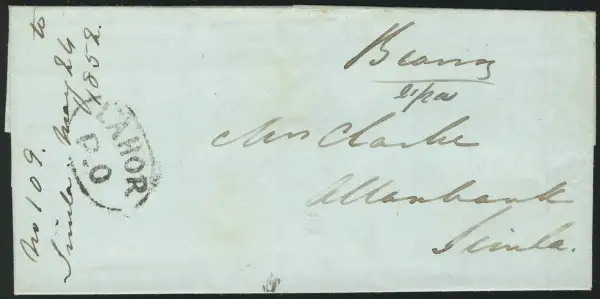 Bearing
Mrs Clarke
Allanbank
Simla.
LAHOR
P.O
No 109.
Simla May 24 to
1852.